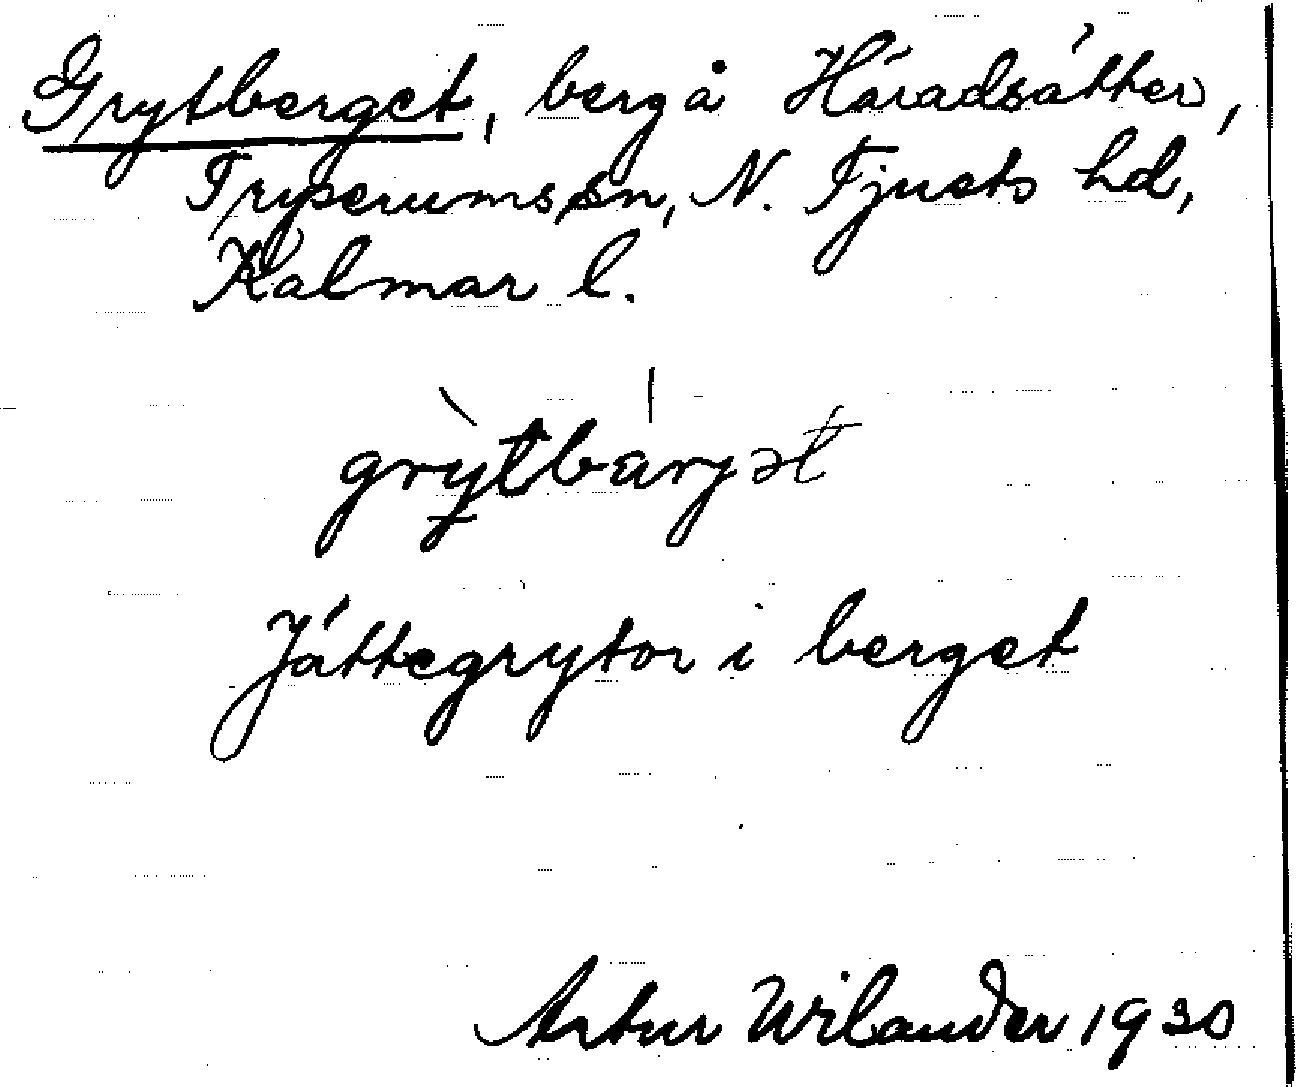 Grytberget, berg å Häradsätter,
Tryserums sn, N. Tjusts hd,
Kalmar l.
grỳ̠tbárjət
Jättegrytor i berget
Artur Wilander 1930